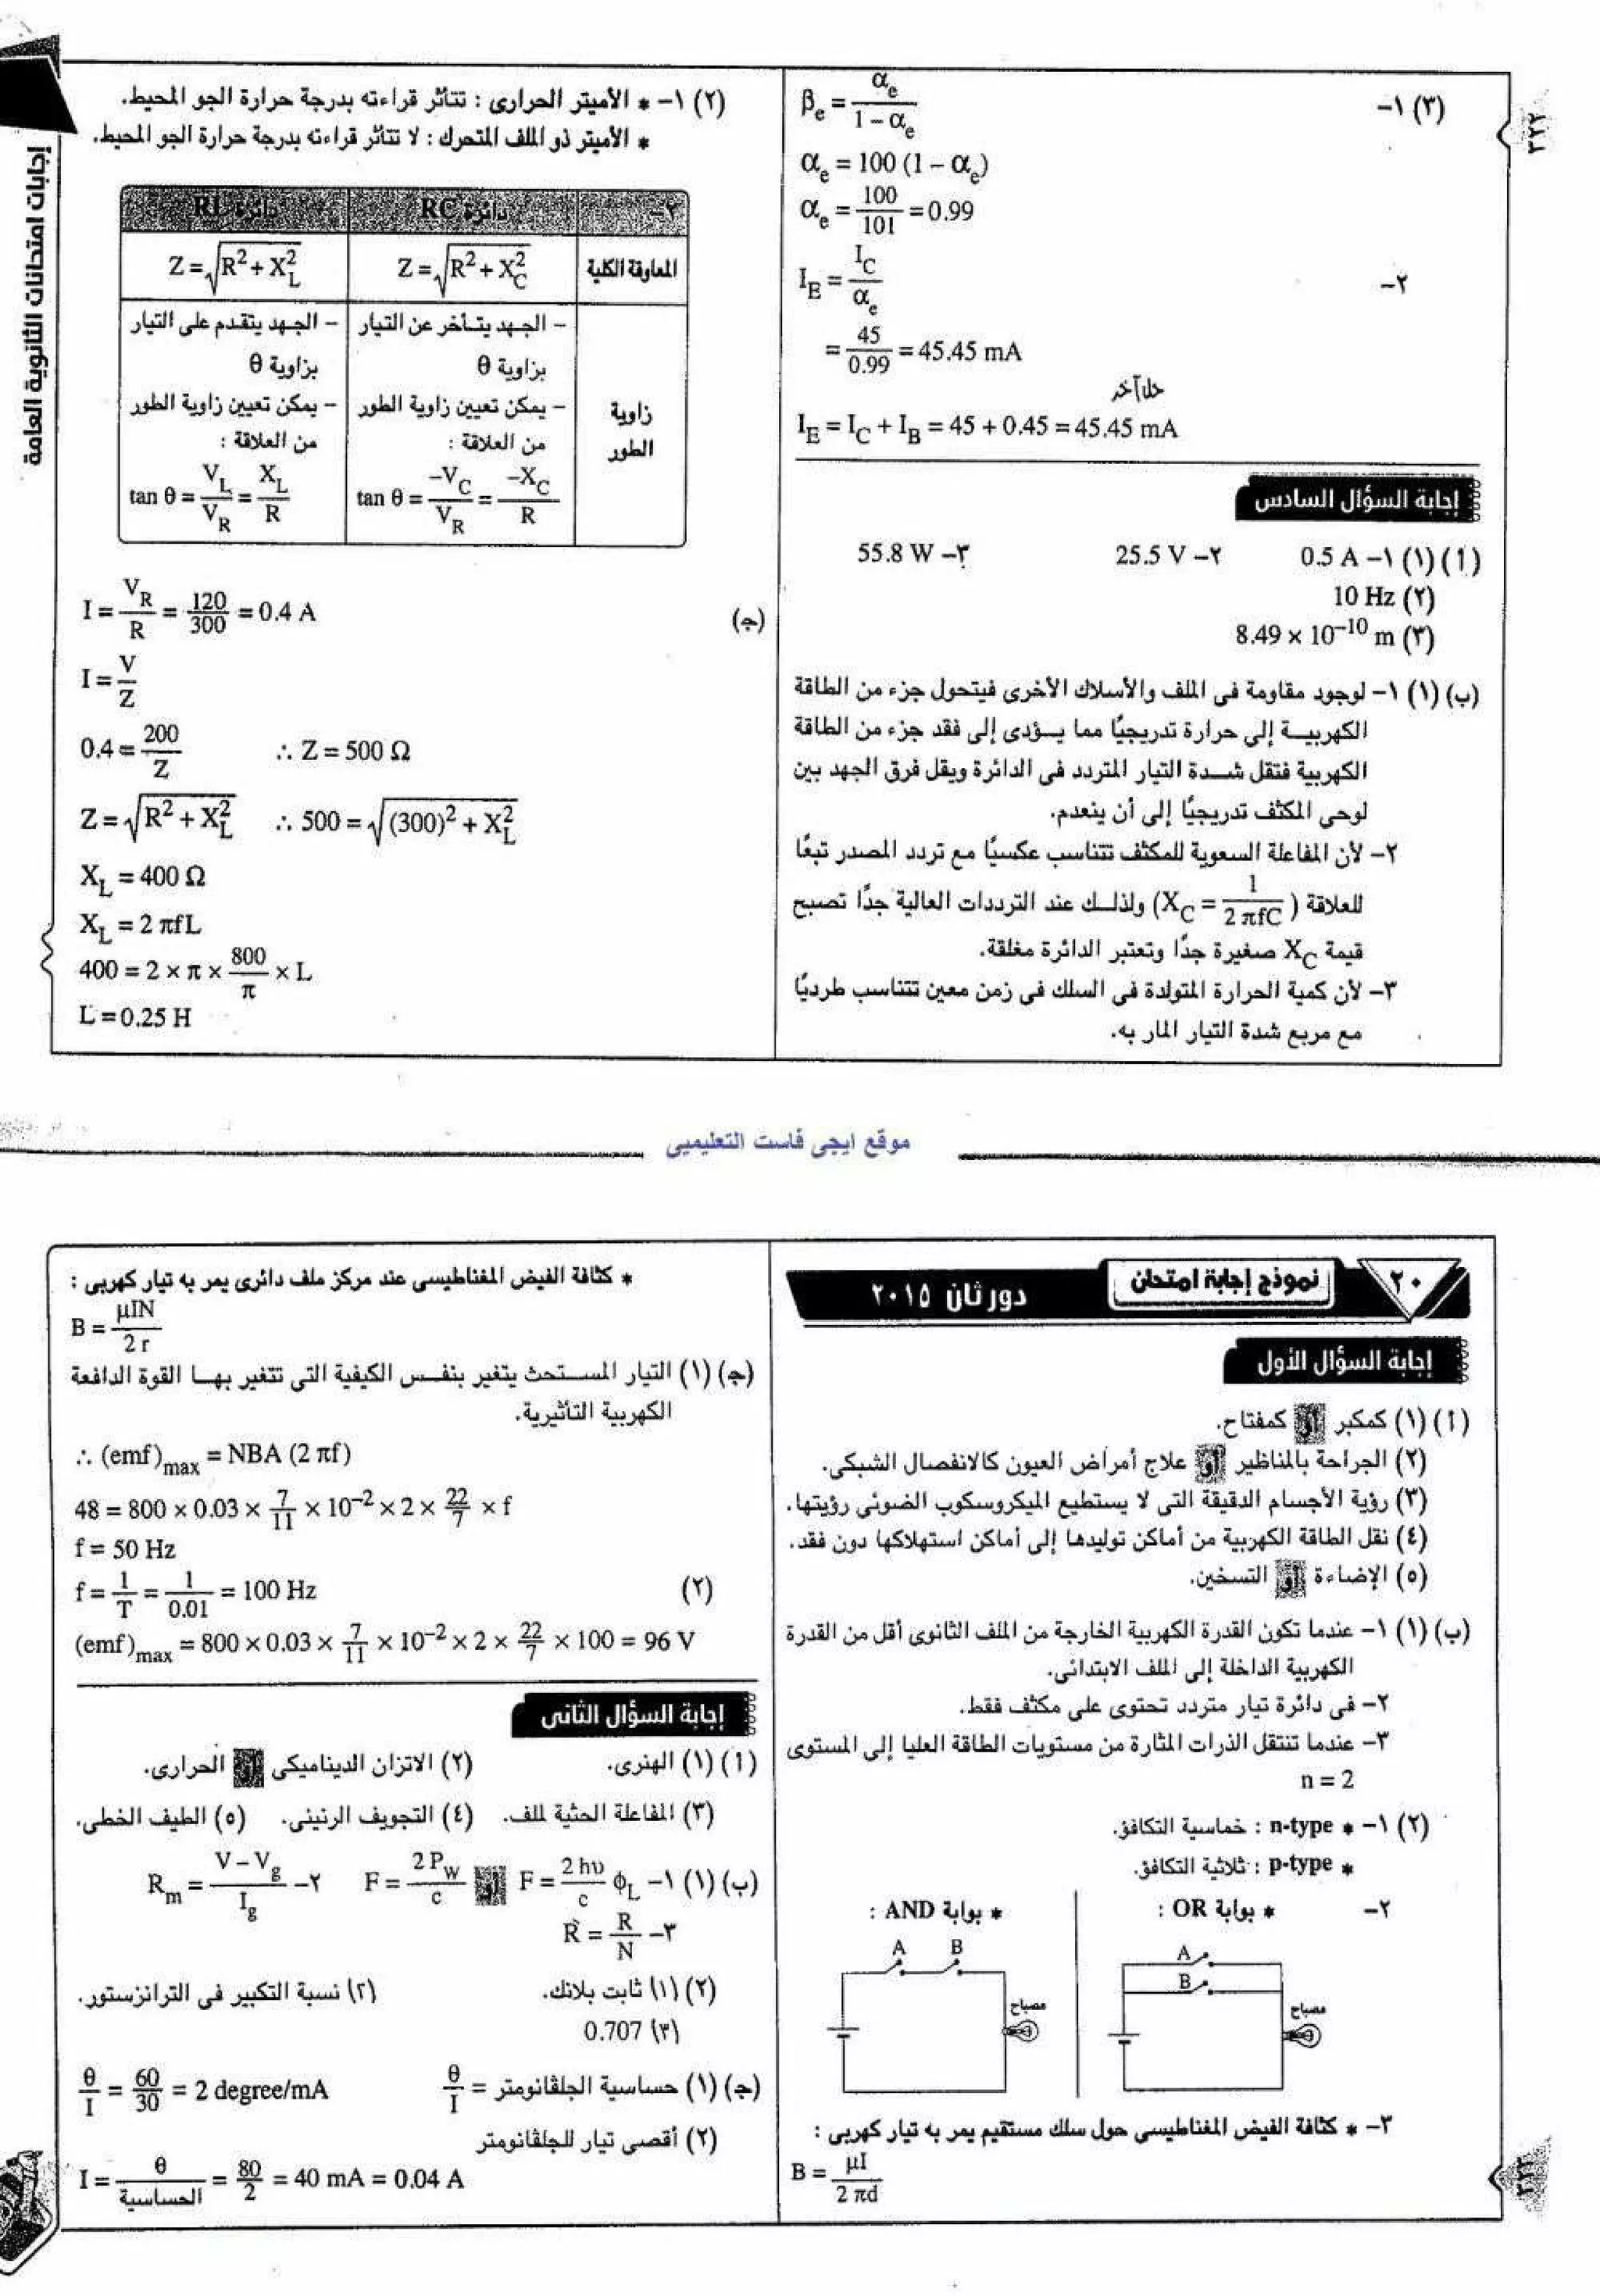 ٣٢٢
(٣) ١- βe = αe / (1 – αe)
αe = 100 (1 – αe)
αe = 100/101 = 0.99
٢- IE = IC / αe
= 45/0.99 = 45.45 mA
حل آخر
IE = IC + IB = 45 + 0.45 = 45.45 mA
إجابة السؤال السادس
(أ) (١) ١- 0.5 A ٢- 25.5 V ٣- 55.8 W
(٢) 10 Hz
(٣) 8.49 × 10⁻¹⁰ m
(ب) (١) ١- لوجود مقاومة فى الملف والأسلاك الأخرى فيتحول جزء من الطاقة
الكهربية إلى حرارة تدريجيًا مما يؤدى إلى فقد جزء من الطاقة
الكهربية فتقل شدة التيار المتردد فى الدائرة ويقل فرق الجهد بين
لوحى المكثف تدريجيًا إلى أن ينعدم.
٢- لأن المفاعلة السعوية للمكثف تتناسب عكسيًا مع تردد المصدر تبعًا
للعلاقة (XC = 1 / 2 πfC) ولذلك عند الترددات العالية جدًا تصبح
قيمة XC صغيرة جدًا وتعتبر الدائرة مغلقة.
٣- لأن كمية الحرارة المتولدة فى السلك فى زمن معين تتناسب طرديًا
مع مربع شدة التيار المار به.
(٢) ١- * الأميتر الحرارى : تتأثر قراءته بدرجة حرارة الجو المحيط.
* الأميتر ذو الملف المتحرك : لا تتأثر قراءته بدرجة حرارة الجو المحيط.
٢- دائرة RC دائرة RL
المعاوقة الكلية Z = √(R² + XC²) Z = √(R² + XL²)
زاوية الطور
– الجهد يتأخر عن التيار
بزاوية θ
– يمكن تعيين زاوية الطور
من العلاقة :
tan θ = –VC / VR = –XC / R
– الجهد يتقدم على التيار
بزاوية θ
– يمكن تعيين زاوية الطور
من العلاقة :
tan θ = VL / VR = XL / R
(جـ) I = VR / R = 120/300 = 0.4 A
I = V/Z
0.4 = 200/Z ∴ Z = 500 Ω
Z = √(R² + XL²) ∴ 500 = √((300)² + XL²)
XL = 400 Ω
XL = 2 πfL
400 = 2 × π × 800/π × L
L = 0.25 H
إجابات امتحانات الثانوية العامة
موقع ايجى فاست التعليميى
٢٠ نموذج إجابة امتحان دور ثان ٢٠١٥
إجابة السؤال الأول
(أ) (١) كمكبر أو كمفتاح.
(٢) الجراحة بالمناظير أو علاج أمراض العيون كالانفصال الشبكى.
(٣) رؤية الأجسام الدقيقة التى لا يستطيع الميكروسكوب الضوئى رؤيتها.
(٤) نقل الطاقة الكهربية من أماكن توليدها إلى أماكن استهلاكها دون فقد.
(٥) الإضاءة أو التسخين.
(ب) (١) ١- عندما تكون القدرة الكهربية الخارجة من الملف الثانوى أقل من القدرة
الكهربية الداخلة إلى الملف الابتدائى.
٢- فى دائرة تيار متردد تحتوى على مكثف فقط.
٣- عندما تنتقل الذرات المثارة من مستويات الطاقة العليا إلى المستوى
n = 2
(٢) ١- * n-type : خماسية التكافؤ.
* p-type : ثلاثية التكافؤ.
٢- * بوابة OR : * بوابة AND :
A
B
مصباح
A B
مصباح
٣- * كثافة الفيض المغناطيسى حول سلك مستقيم يمر به تيار كهربى :
B = μI / 2 πd
٣٢٣
* كثافة الفيض المغناطيسى عند مركز ملف دائرى يمر به تيار كهربى :
B = μIN / 2 r
(جـ) (١) التيار المستحث يتغير بنفس الكيفية التى تتغير بها القوة الدافعة
الكهربية التأثيرية.
∴ (emf)max = NBA (2 πf)
48 = 800 × 0.03 × 7/11 × 10⁻² × 2 × 22/7 × f
f = 50 Hz
(٢) f = 1/T = 1/0.01 = 100 Hz
(emf)max = 800 × 0.03 × 7/11 × 10⁻² × 2 × 22/7 × 100 = 96 V
إجابة السؤال الثانى
(أ) (١) الهنرى. (٢) الاتزان الديناميكى أو الحرارى.
(٣) المفاعلة الحثية لملف. (٤) التجويف الرنينى. (٥) الطيف الخطى.
(ب) (١) ١- F = 2 hυ/c ϕL أو F = 2 PW / c ٢- Rm = (V – Vg) / Ig
٣- R̀ = R/N
(٢) (١) ثابت بلانك. (٢) نسبة التكبير فى الترانزستور.
(٣) 0.707
(جـ) (١) حساسية الجلڤانومتر = θ/I θ/I = 60/30 = 2 degree/mA
(٢) أقصى تيار للجلڤانومتر
I = θ / الحساسية = 80/2 = 40 mA = 0.04 A